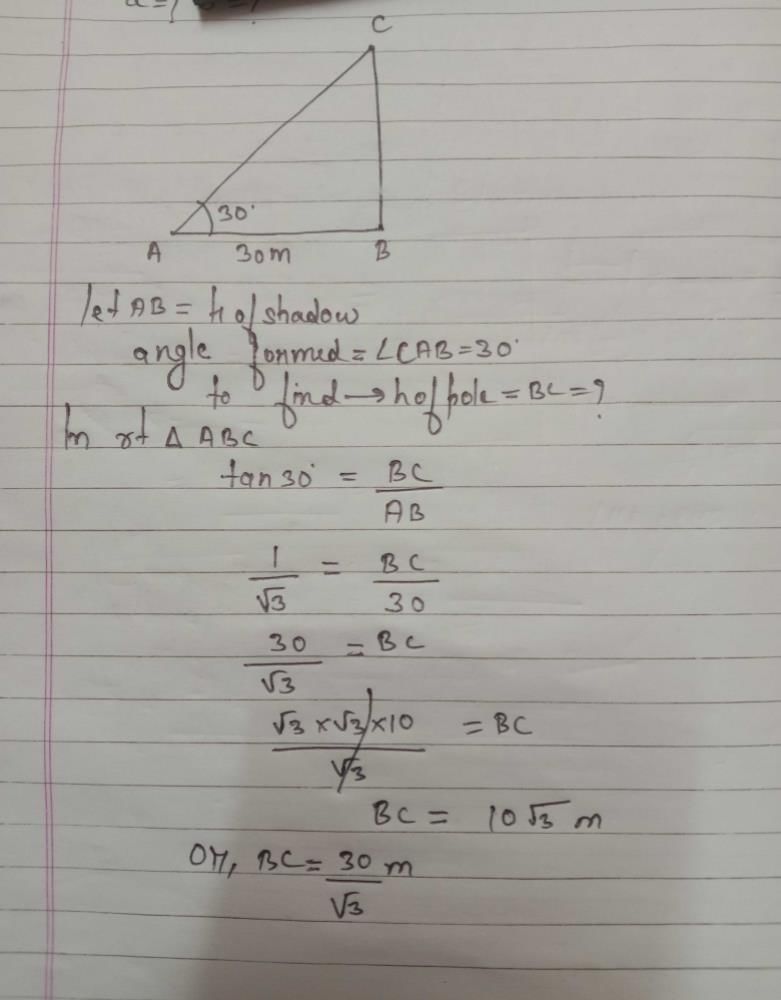 C
30°
A
30m
B
let AB = h of shadow
angle formed = ∠CAB = 30°
to find → h of pole = BC = ?
In rt Δ ABC
tan 30° = BC/AB
1/√3 = BC/30
30/√3 = BC
√3 × √3 × 10/√3 = BC
BC = 10√3 m
Or, BC = 30/√3 m